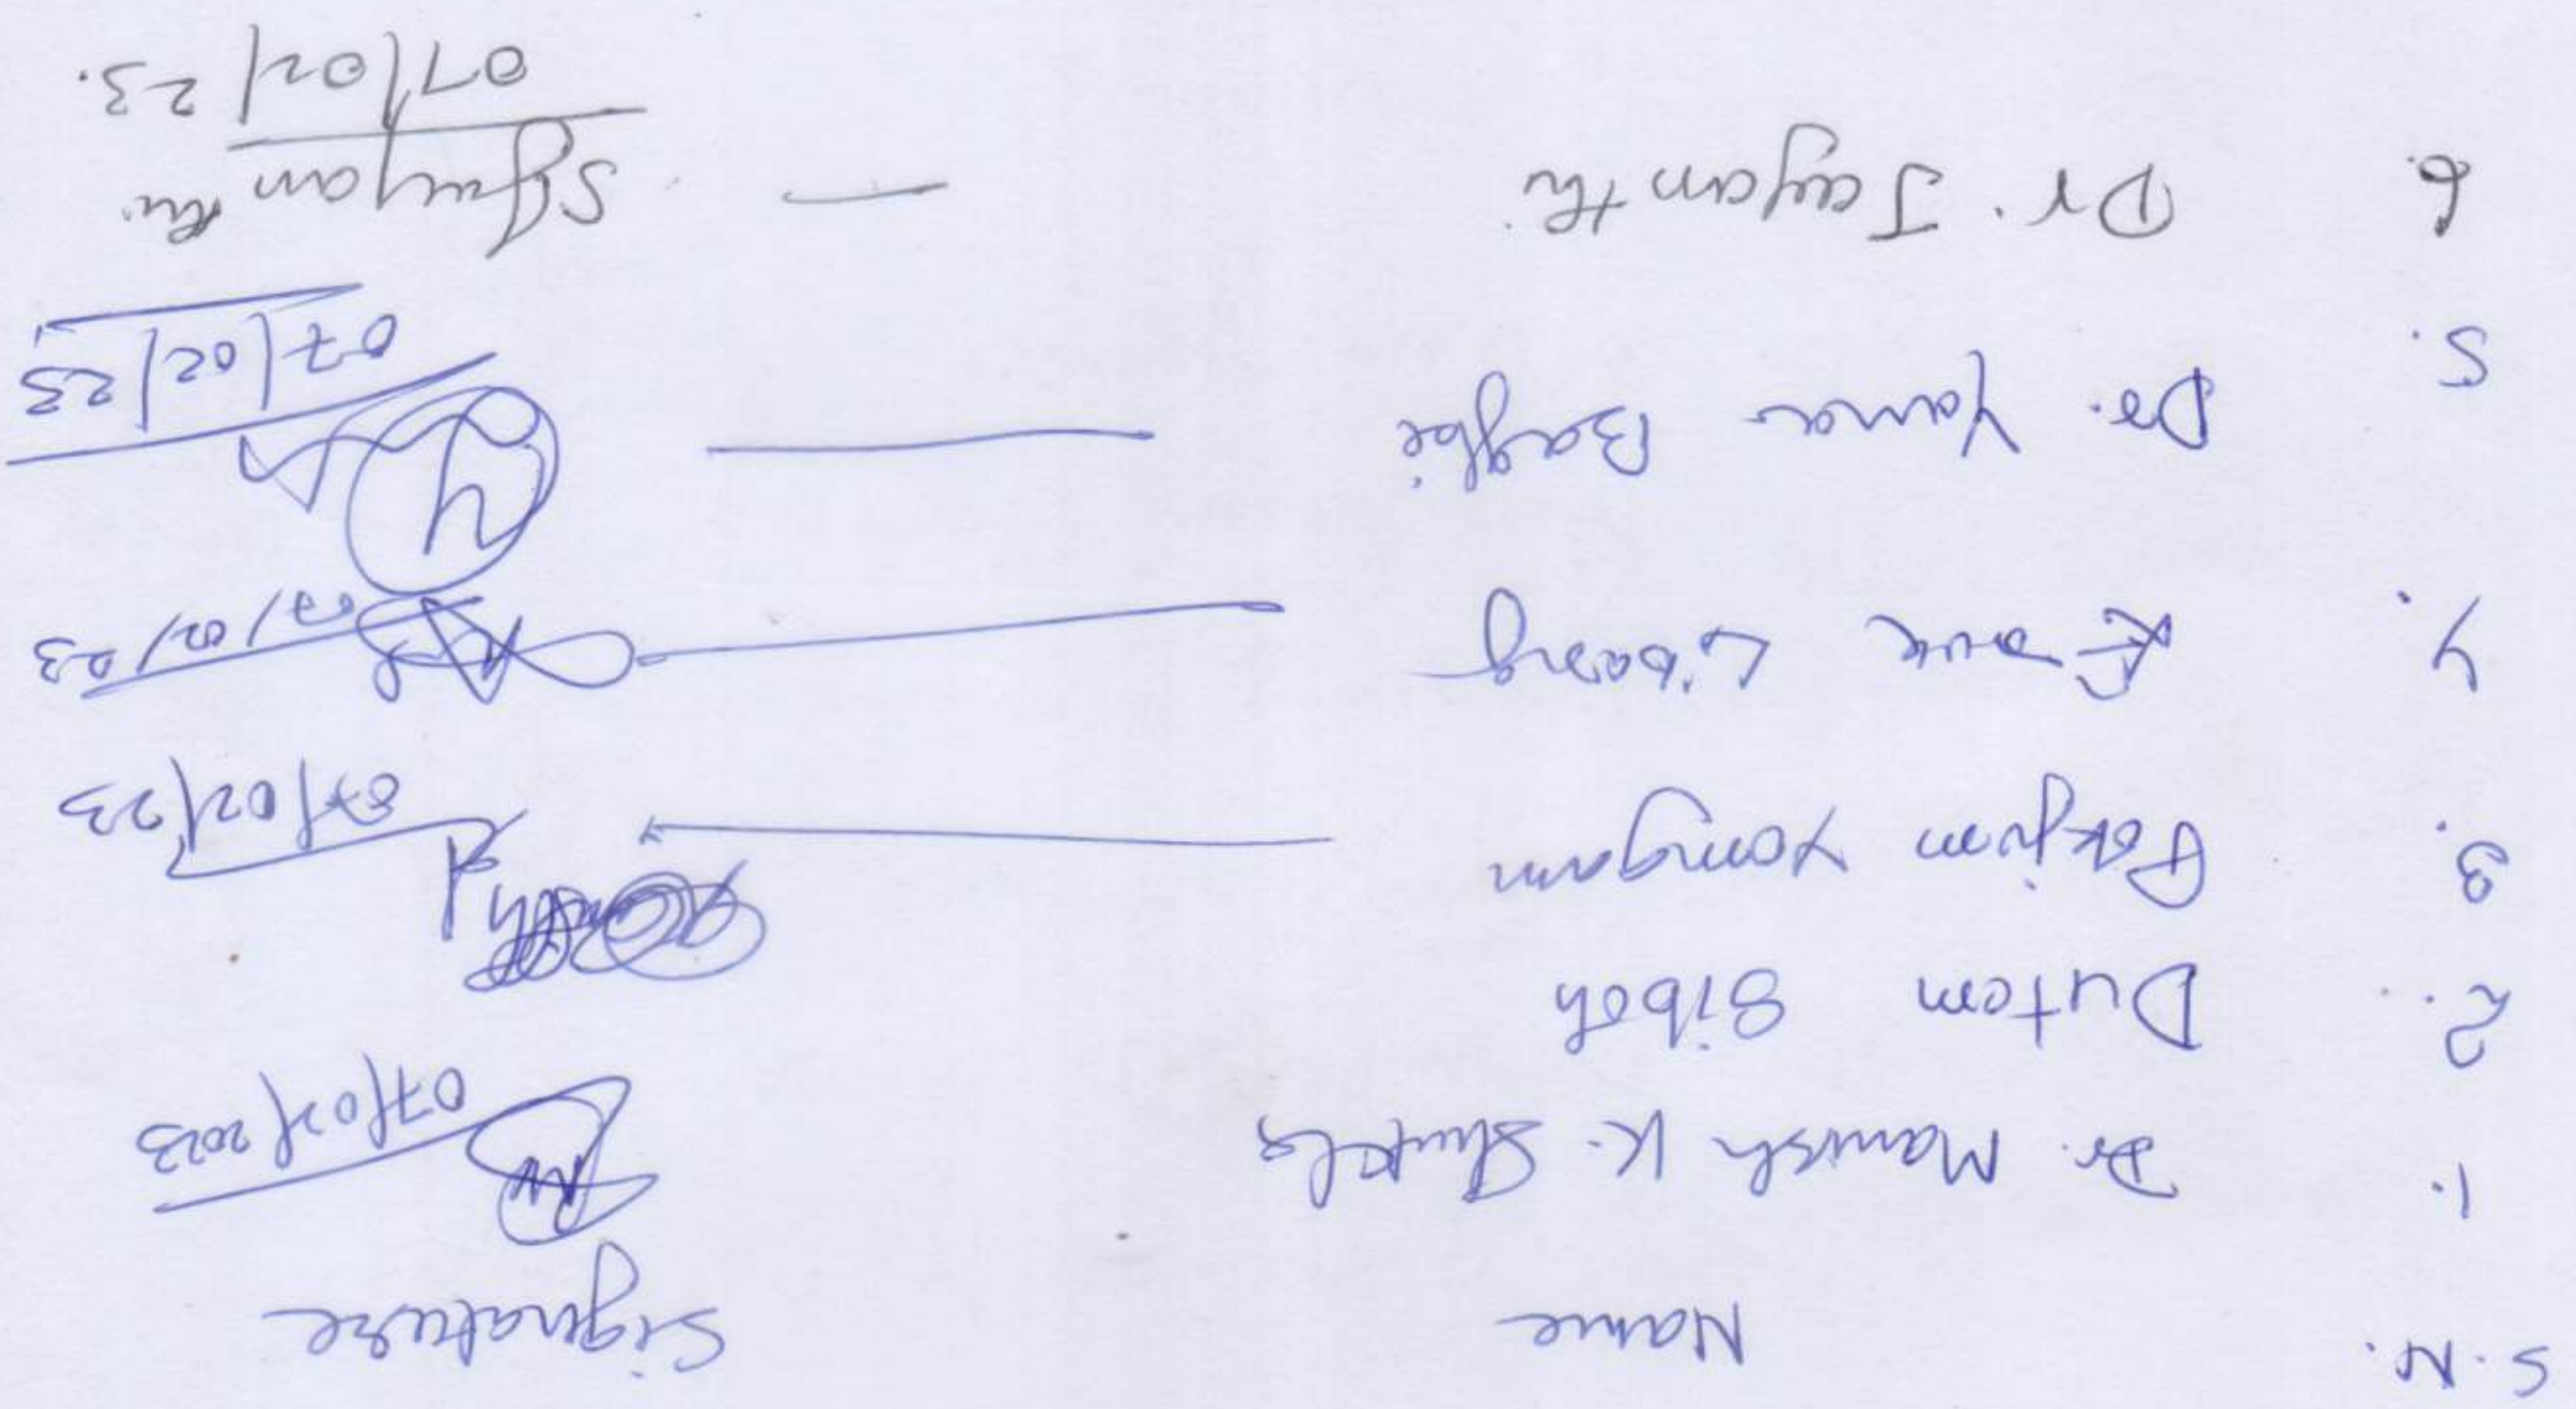 S.N. Name Signature
1. Dr. Manish K. Shukla 07/02/2023
2. Dutem Siboh
3. Yomgam 07/02/23
4. Libang 07/02/23
5. Dr. Yama Bagbi 07/02/23
6. Dr. Jayanthi — SJayanthi
07/02/23.